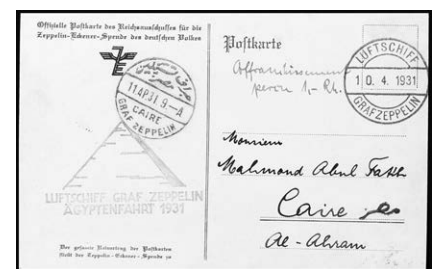 Offizielle Postkarte des Reichsausschusses für die
Zeppelin-Eckener-Spende des deutschen Volkes
11AP31.9-A
CAIRE
GRAF ZEPPELIN
LUFTSCHIFF GRAF ZEPPELIN
ÄGYPTENFAHRT 1931
Der gesamte Reinertrag der Postkarten
fließt der Zeppelin-Eckener-Spende zu
Postkarte
LUFTSCHIFF
10.4.1931
GRAF ZEPPELIN
Monsieur
Mahmoud Abul Fath
Caire
Al-Ahram